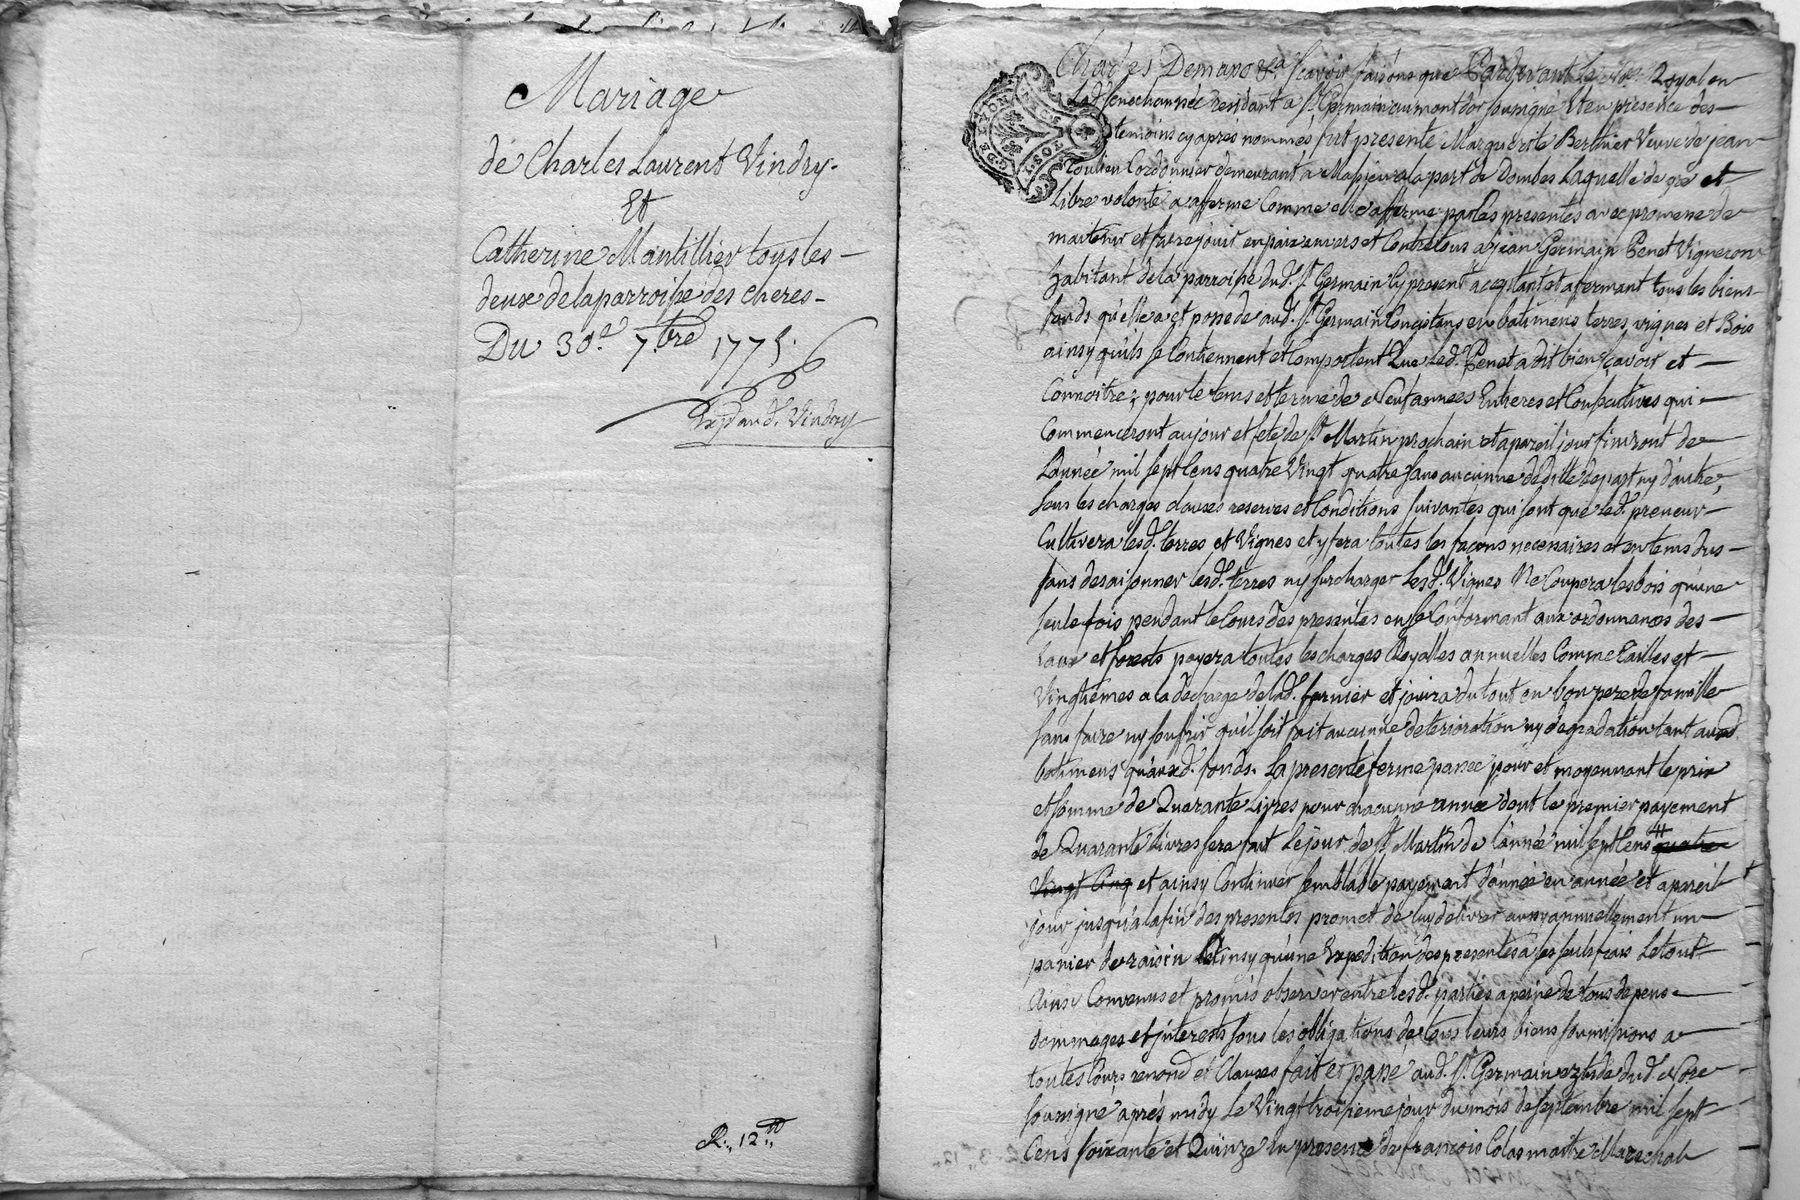 Mariage
de Charles Laurent Vindry.
Et
Catherine Mantillier tous les
deux de la parroisse des cheres
Du 30.e 7.bre 1775.
Exp. au d. Vindry
R. 12
Charles Demano &a scavoir faisons que Pardevant le No.re Royal en
Lad. senechaussée residant a S.t Germain au mont dor soussigné Et en presence des
temoins cy apres nommés fut presente Marguerite Berthier Veuve de jean
Cordonnier demeurant a Massieu a la part de Dombes Laquelle de gré et
Libre volonté a afermé Comme elle aferme par les presentes avec promesse de
maitenir et faire jouir en paix envers et Contre tous a jean Germain Penet Vigneron
habitant de la parroisse dud. S.t Germain Cy present aceptant et afermant tous les biens
fonds qu'elle a et possede aud. S.t Germain Consistans en batimens terres vignes et Bois
ainsy qu'ils se Contiennent et Comportent Que led. Penet a dit bien sçavoir et
Connoitre; pour le tems et terme de Neuf années Entieres et Consecutives qui
Commenceront au jour et fete de S.t Martin prochain et a pareil jour finiront de
L'année mil sept Cens quatre Vingt quatre sans aucunne deditte de part ny d'autre,
sous les charges clauses reserves et Conditions suivantes qui sont que led. preneur
Cultivera lesd. terres et Vignes et y fera toutes les façons necessaires et en tems dus
sans desaisonner lesd. terres ny surcharger lesd. Vignes Ne Coupera les bois qu'une
seule fois pendant le Cours des presentes en se Conformant aux ordonnances des
Eaux et forests payera toutes les charges Royalles annuelles Comme Tailles et
Vingtiemes a la decharge de lad. et jouira du tout en bon pere de famille
sans faire ny soufrir qu'il soit fait aucunne deterioration ny degradation tant aud.
batimens qu'auxd. fonds. La presente ferme passée pour et moyennant le prix
et somme de Quarante Livres pour chacunne année dont le premier payement
de Quarante Livres sera fait Le jour de S.t Martin de l'année mil sept Cens quatre
Vingt Cinq et ainsy Continuer semblable payement d'année en année et a pareil
jour jusqu'a la fin des presentes promet de luy delivrer aussy annuellement un
panier de raisin Et insy qu'une Expedition des presentes a ses seuls frais Le tout
Ainsi Convenus et promis observer entre lesd. parties a peine de tous depens
dommages et interests sous les obligations de tous leurs biens soumissions a
toutes Cours renond et Clauses fait et passé aud. S.t Germain dud. No.re
soussigné aprés midy Le Vingt troisieme jour du mois de septembre mil sept
Cens soixante et Quinze En presence de francois Colas maitre Marechal